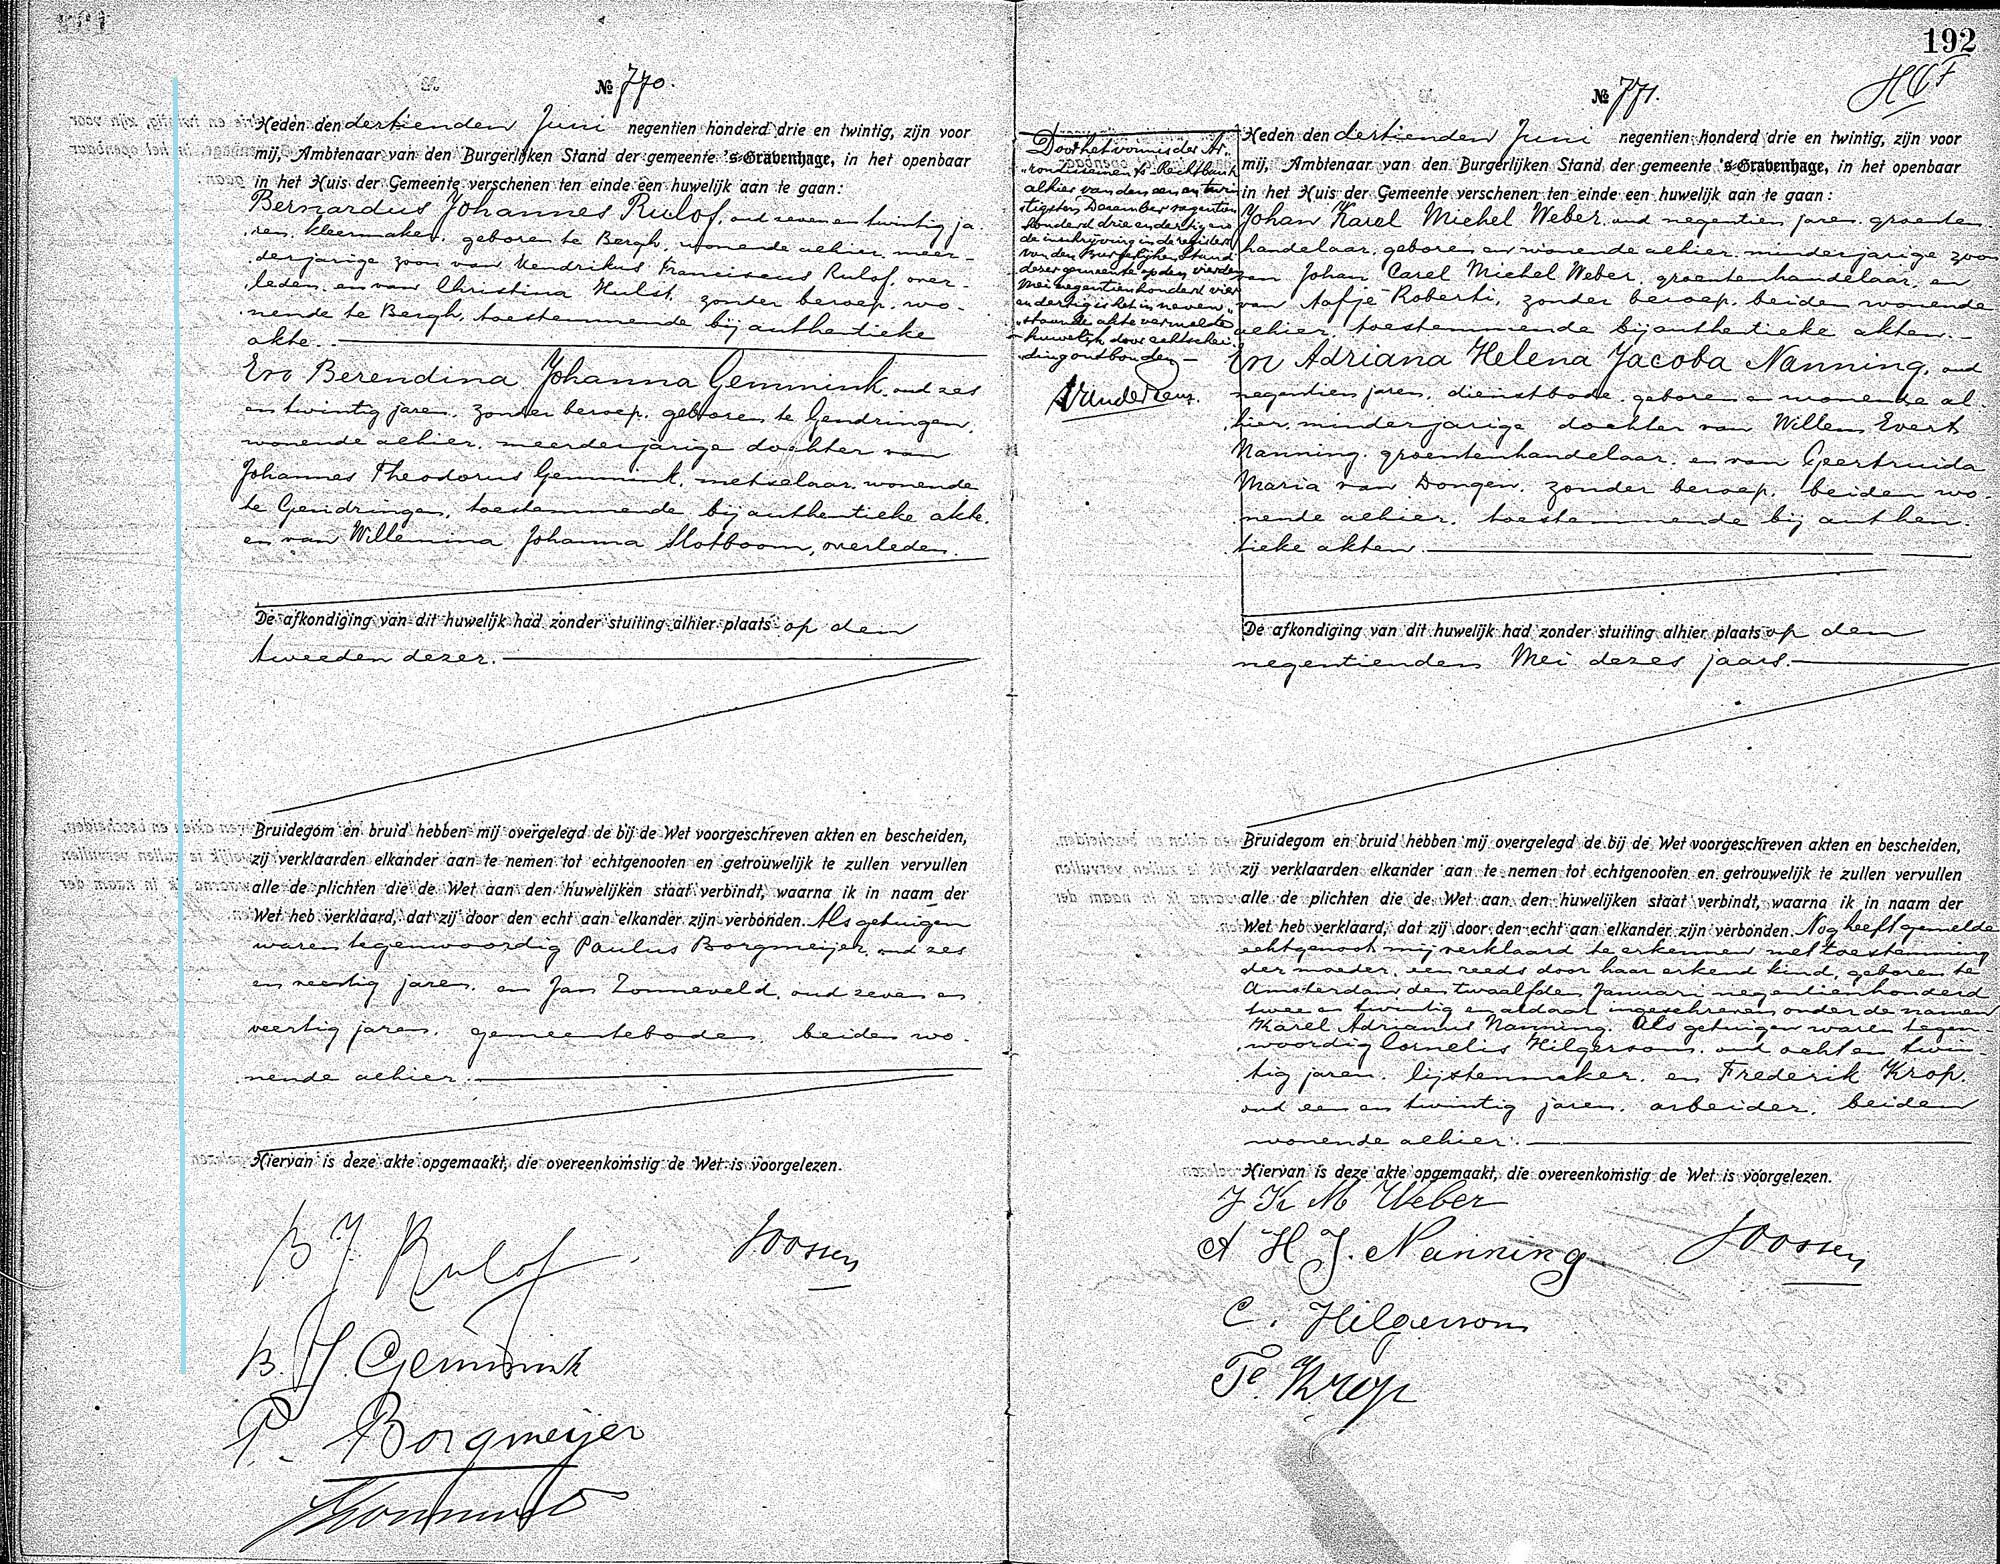 № 770.
Heden den dertienden Juni negentien honderd drie en twintig, zijn voor
mij, Ambtenaar van den Burgerlijken Stand der gemeente 's-Gravenhage, in het openbaar
in het Huis der Gemeente verschenen ten einde een huwelijk aan te gaan:
Bernardus Johannes Rulof, oud zeven en twintig ja-
ren, kleermaker, geboren te Bergh, wonende alhier, meer-
derjarige zoon van Hendrikus Franciscus Rulof, over-
leden, en van Christina Hulst, zonder beroep, wo-
nende te Bergh, toestemmende bij authentieke
akte.
En Berendina Johanna Gemmink, oud zes
en twintig jaren, zonder beroep, geboren te Gendringen,
wonende alhier, meerderjarige dochter van
Johannes Theodorus Gemmink, metselaar, wonende
te Gendringen, toestemmende bij authentieke akte,
en van Willemina Johanna Slotboom, overleden.
De afkondiging van dit huwelijk had zonder stuiting alhier plaats op den
tweeden dezer.
Bruidegom en bruid hebben mij overgelegd de bij de Wet voorgeschreven akten en bescheiden,
zij verklaarden elkander aan te nemen tot echtgenooten en getrouwelijk te zullen vervullen
alle de plichten die de Wet aan den huwelijken staat verbindt, waarna ik in naam der
Wet heb verklaard, dat zij door den echt aan elkander zijn verbonden. Als getuigen
waren tegenwoordig Paulus Borgmeijer, oud zes
en veertig jaren, en Jan Zonneveld, oud zeven en
veertig jaren, gemeentebode, beiden wo-
nende alhier.
Hiervan is deze akte opgemaakt, die overeenkomstig de Wet is voorgelezen.
B J Rulof. Joossen
B. J. Gemmink
P. Borgmeijer
192
HCF
№ 771.
Door het vonnis der Ar-
rondissements-Rechtbank
alhier van den een en twin
tigsten December negentien
honderd drie en dertig en
de inschrijving in de registers
van den Burgerlijken Stand
dezer gemeente op den vierden
Mei negentienhonderd vier
en dertig is het in neven-
staande akte vermelde
huwelijk door echtschei-
ding ontbonden.
Heden den dertienden Juni negentien honderd drie en twintig, zijn voor
mij, Ambtenaar van den Burgerlijken Stand der gemeente 's-Gravenhage, in het openbaar
in het Huis der Gemeente verschenen ten einde een huwelijk aan te gaan:
Johan Karel Michel Weber, oud negentien jaren, groenten-
handelaar, geboren en wonende alhier, minderjarige zoon
van Johan Carel Michel Weber, groentenhandelaar, en
van Aafje Roberti, zonder beroep, beiden wonende
alhier, toestemmende bij authentieke akten.
En Adriana Helena Jacoba Nanning, oud
negentien jaren, dienstbode, geboren en wonende al-
hier, minderjarige dochter van Willem Evert
Nanning, groentenhandelaar, en van Geertruida
Maria van Dongen, zonder beroep, beiden wo-
nende alhier, toestemmende bij authen-
tieke akten.
De afkondiging van dit huwelijk had zonder stuiting alhier plaats op den
negentienden Mei dezes jaars.
Bruidegom en bruid hebben mij overgelegd de bij de Wet voorgeschreven akten en bescheiden,
zij verklaarden elkander aan te nemen tot echtgenooten en getrouwelijk te zullen vervullen
alle de plichten die de Wet aan den huwelijken staat verbindt, waarna ik in naam der
Wet heb verklaard, dat zij door den echt aan elkander zijn verbonden. Nog heeft gemelde
echtgenoot mij verklaard te erkennen met toestemming
der moeder, een reeds door haar erkend kind, geboren te
Amsterdam den twaalfden Januari negentienhonderd
twee en twintig en aldaar ingeschreven onder de namen
Karel Adrianus Nanning. Als getuigen waren tegen-
woordig Cornelis Hilgersom, oud acht en twin-
tig jaren, lijstenmaker, en Frederik Krop,
oud een en twintig jaren, arbeider, beiden
wonende alhier.
Hiervan is deze akte opgemaakt, die overeenkomstig de Wet is voorgelezen.
J K M Weber
A H J. Nanning Joossen
C. Hilgersom
Fe. Krop